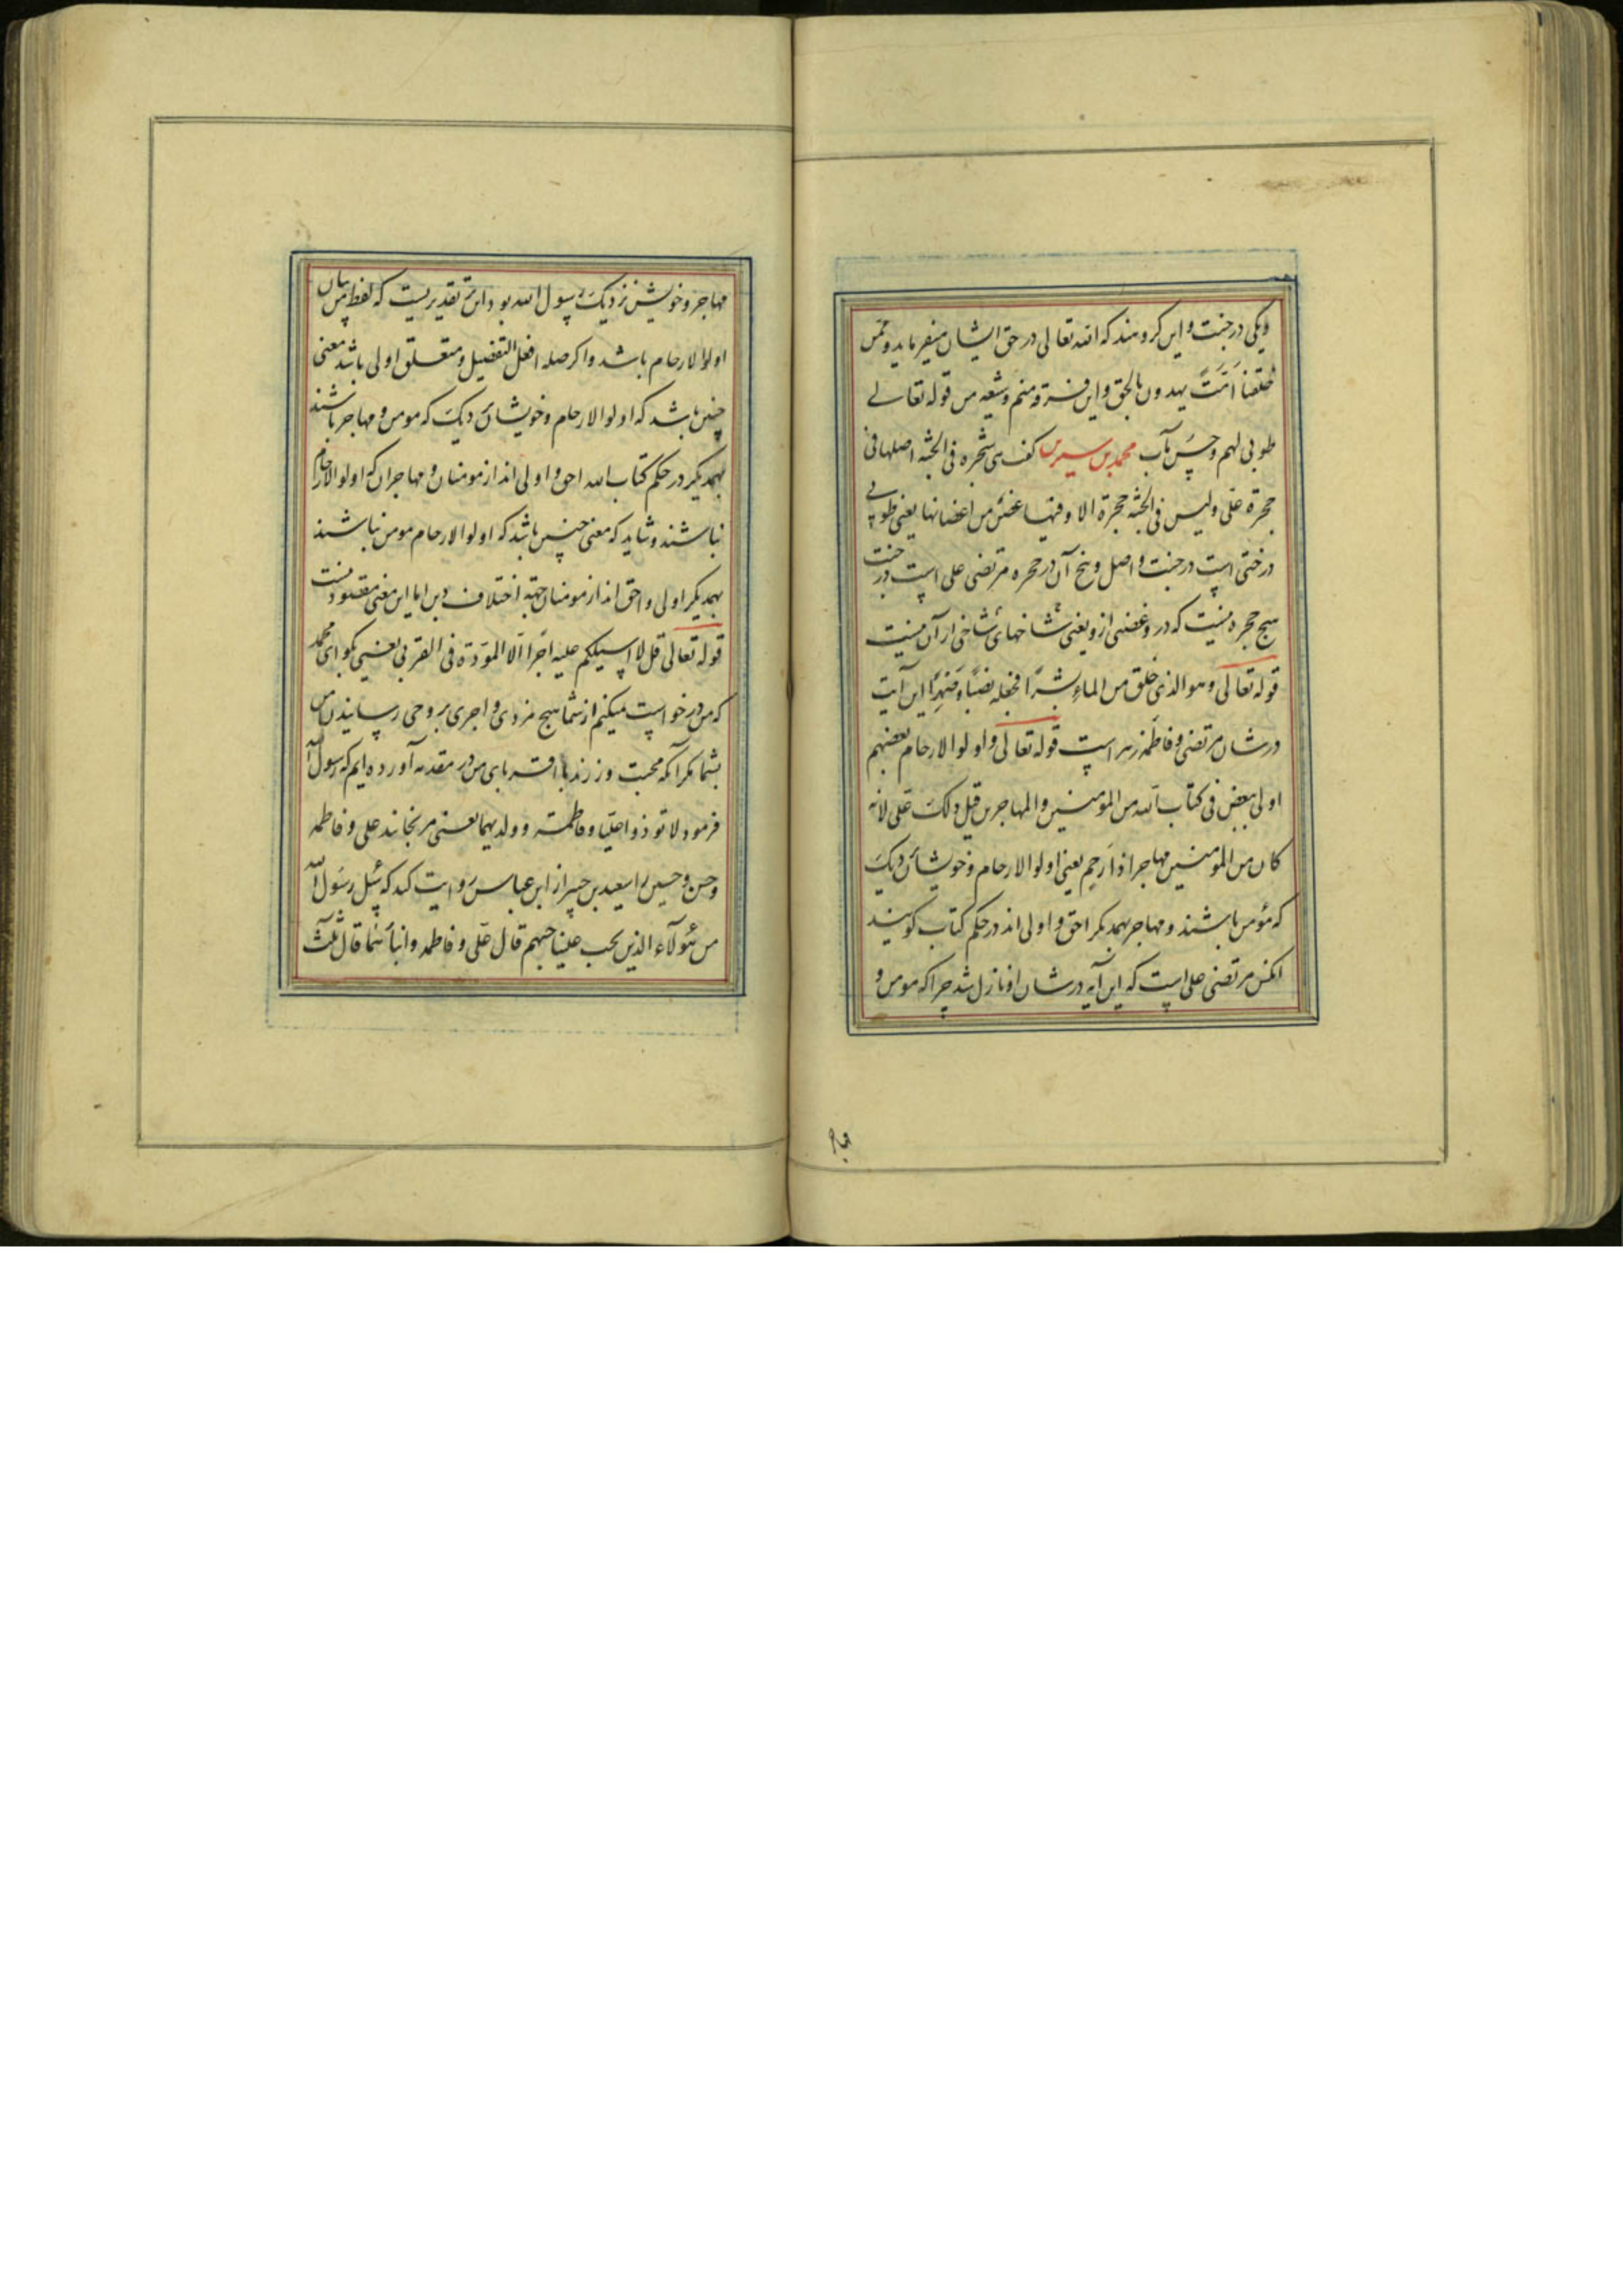 و یکی در جنت و این کروهند که الله تعالی در حق ایشان میفرماید و ممن
خلقنا اُمَّتً یهدون بالحق و این فرقه منم و شیعه من قوله تعالی
طوبی لهم و حسن مآب محمد بن سیرین کفت هی شجرة فی الجنّة اصلها فی
حجرة علی و لیس فی الجنّة حجرة الا و فیها غصنٌ من اغصانها یعنی طوبی
درختی است در جنت و اصل و بیخ آن در حجره مرتضی علی است در جنت
هیچ حجره نیست که در و غصنی از و یعنی شاخهای شاخی از آن نیست
قوله تعالی و هو الذی خلق من الماءِ بشرًا فجعله نسبًا و صهرًا این آیت
در شان مرتضی و فاطمه زهرا است قوله تعالی و اولوا الارحام بعضهم
اولی ببعض فی کتاب الله من المومنین و المهاجرین قیل ذلک علی لانه
کان من المومنین مهاجرا ذا رحم یعنی اولوا الارحام و خویشان نزدیک
که مؤمن باشند و مهاجر بهمدیکر احق و اولی اند در حکم کتاب کویند
انکس مرتضی علی است که این آیه در شان او نازل شد چرا که مومن و
مهاجر
مهاجر و خویش نزدیک رسول الله بود و این تقدیریست که لفظ من بیان
اولوا الارحام باشد و اکر صله افعل التفضیل و متعلق اولی باشد معنی
چنین باشد که اولوا الارحام و خویشان نزدیک که مومن و مهاجر باشند
بهمدیکر در حکم کتاب الله احق و اولی اند از مومنان و مهاجران که اولوا الارحام
نباشند و شاید که معنی چنین باشد که اولوا الارحام مومن نباشند
بهمدیکر اولی و احق اند از مومنان جهة اختلاف دین اما این معنی مقصود نیست
قوله تعالی قل لا اسئلکم علیه اجرًا الّا المودّة فی القربی یعنی بکو ای محمد
که من درخواست میکنم از شما هیچ مزدی و اجری بر وحی رسانیدن من
بشما مکر آنکه محبت ورزند با اقربای من در مقدمه آورده ایم که رسول
فرمود لا توذوا علیّا و فاطمة و ولدیهما یعنی مرنجانید علی و فاطمه
و حسن و حسین را سعید بن جبیر از ابن عباس روایت کند که سُئِل رسول الله
من هٰؤلآء الذین یجب علینا حبهم قال علی و فاطمه و ابناهما قال ثلث